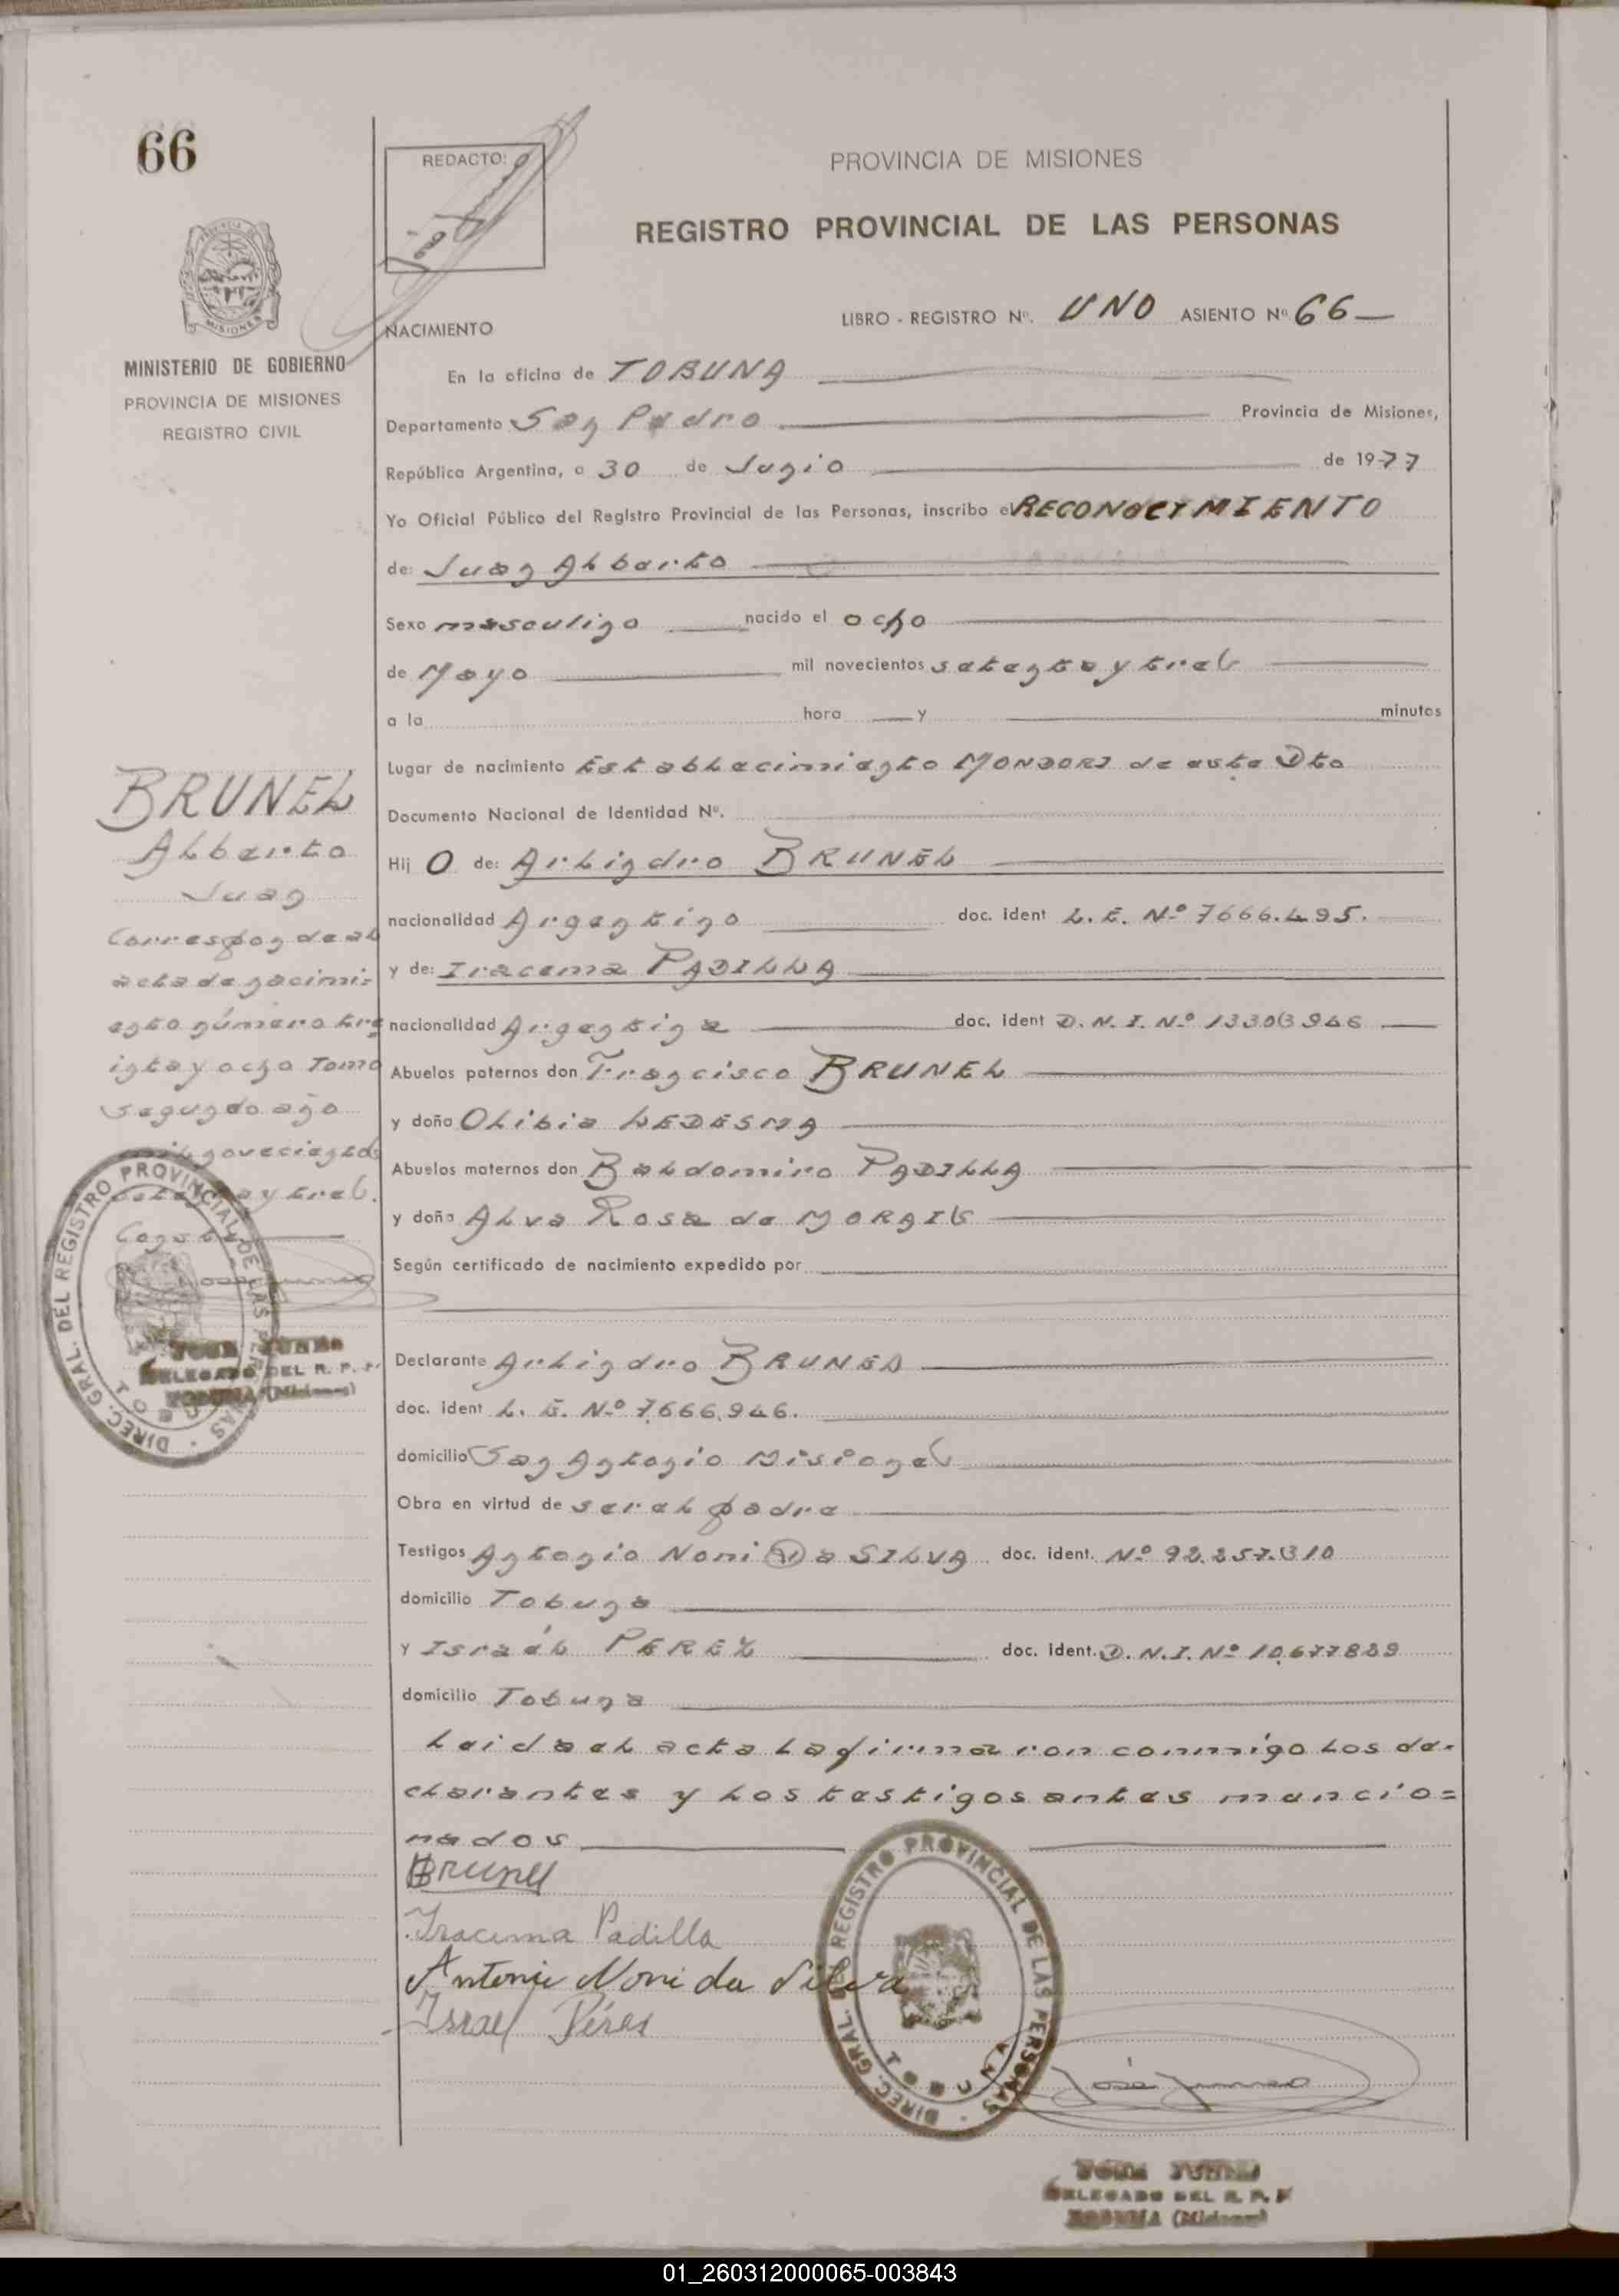 66
REDACTO:
PROVINCIA DE MISIONES
REGISTRO PROVINCIAL DE LAS PERSONAS
LIBRO - REGISTRO Nº. UNO ASIENTO Nº 66
NACIMIENTO
MISIONES
MINISTERIO DE GOBIERNO
PROVINCIA DE MISIONES
REGISTRO CIVIL
En la oficina de TOBUNA
Departamento San Pedro Provincia de Misiones,
República Argentina, a 30 de Junio de 1977
Yo Oficial Público del Registro Provincial de las Personas, inscribo el RECONOCIMIENTO
de: Juan Alberto
Sexo masculino nacido el ocho
de Mayo mil novecientos setenta y tres
a la hora y minutos
Lugar de nacimiento Establecimiento MONDORI de este Dto
Documento Nacional de Identidad Nº.
Hij O de: Arlindro BRUNEL
nacionalidad Argentino doc. ident L. E. Nº 7666.495.
y de: Iracema PADILLA
nacionalidad Argentina doc. ident D. N. I. Nº 13303946
Abuelos paternos don Francisco BRUNEL
y doña Olibia LEDESMA
Abuelos maternos don Baldomiro PADILLA
y doña Alva Rosa de MORAIS
Según certificado de nacimiento expedido por
Declarante Arlindro BRUNEL
doc. ident L. E. Nº 7.666.946.
domicilio San Antonio Misiones
Obra en virtud de ser el padre
Testigos Antonio Noni Da SILVA doc. ident. Nº 92.257.310
domicilio Tobuna
y Israél PEREZ doc. ident. D. N. I. Nº 10.677889
domicilio Tobuna
Leida el acta la firmaron conmigo los de-
clarantes y los testigos antes mencio=
nados
Brunel
Iracema Padilla
Antonio Noni da Silva
Israel Péres
BRUNEL
Alberto
Juan
Corresponde al
acta de nacimi=
ento número tre
inta y ocho Tomo
segundo año
mil novecientos
setenta y tres.
Conste
DIREC. GRAL. DEL REGISTRO PROVINCIAL DE LAS PERSONAS
DELEGADO DEL R. P. P.
TOBUNA (Misiones)
DIREC. GRAL. DEL REGISTRO PROVINCIAL DE LAS PERSONAS
TOBUNA
DELEGADO DEL R. P. P
TOBUNA (Misiones)
01_260312000065-003843